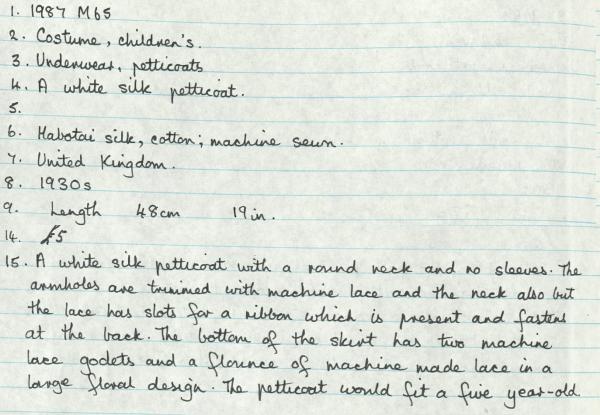 1. 1987 M65
2. Costume, children's.
3. Underwear, petticoats
4. A white silk petticoat.
5.
6. Habotai silk, cotton; machine sewn.
7. United Kingdom.
8. 1930s
9. Length 48cm 19in.
14. £5
15. A white silk petticoat with a round neck and no sleeves. The
armholes are trimmed with machine lace and the neck also but
the lace has slots for a ribbon which is present and fastens
at the back. The bottom of the skirt has two machine
lace godets and a flounce of machine made lace in a
large floral design. The petticoat would fit a five year-old.